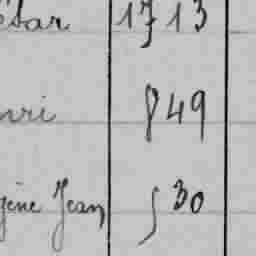 César 1713
nri 849
gène Jean 530